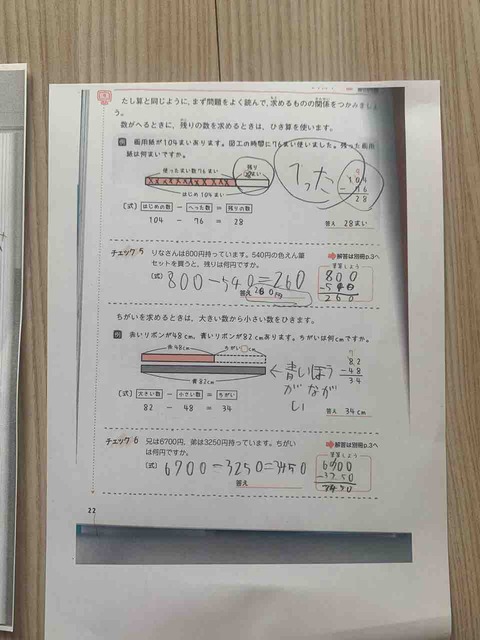 たし算と同じように、まず問題をよく読んで、求めるものの関係をつかみましょ
う。
数がへるときに、残りの数を求めるときは、ひき算を使います。
例 画用紙が104まいあります。図工の時間に76まい使いました。残った画用
紙は何まいですか。
使ったまい数76まい
残り
□まい
はじめ104まい
へった
104
－76
28
[式] はじめの数 － へった数 ＝ 残りの数
104 － 76 ＝ 28
答え 28まい
チェック5 りなさんは800円持っています。540円の色えん筆
セットを買うと、残りは何円ですか。
➡解答は別冊p.3へ
(式) 800－540＝260
答え 260円
計算しよう
800
－540
260
ちがいを求めるときは、大きい数から小さい数をひきます。
例 赤いリボンが48cm、青いリボンが82cmあります。ちがいは何cmですか。
赤48cm
ちがい□cm
青82cm
←青いほう
がなが
い
7
82
－48
34
[式] 大きい数 － 小さい数 ＝ ちがい
82 － 48 ＝ 34
答え 34cm
チェック6 兄は6700円、弟は3250円持っています。ちがい
は何円ですか。
➡解答は別冊p.3へ
(式) 6700－3250＝3450
答え
計算しよう
22